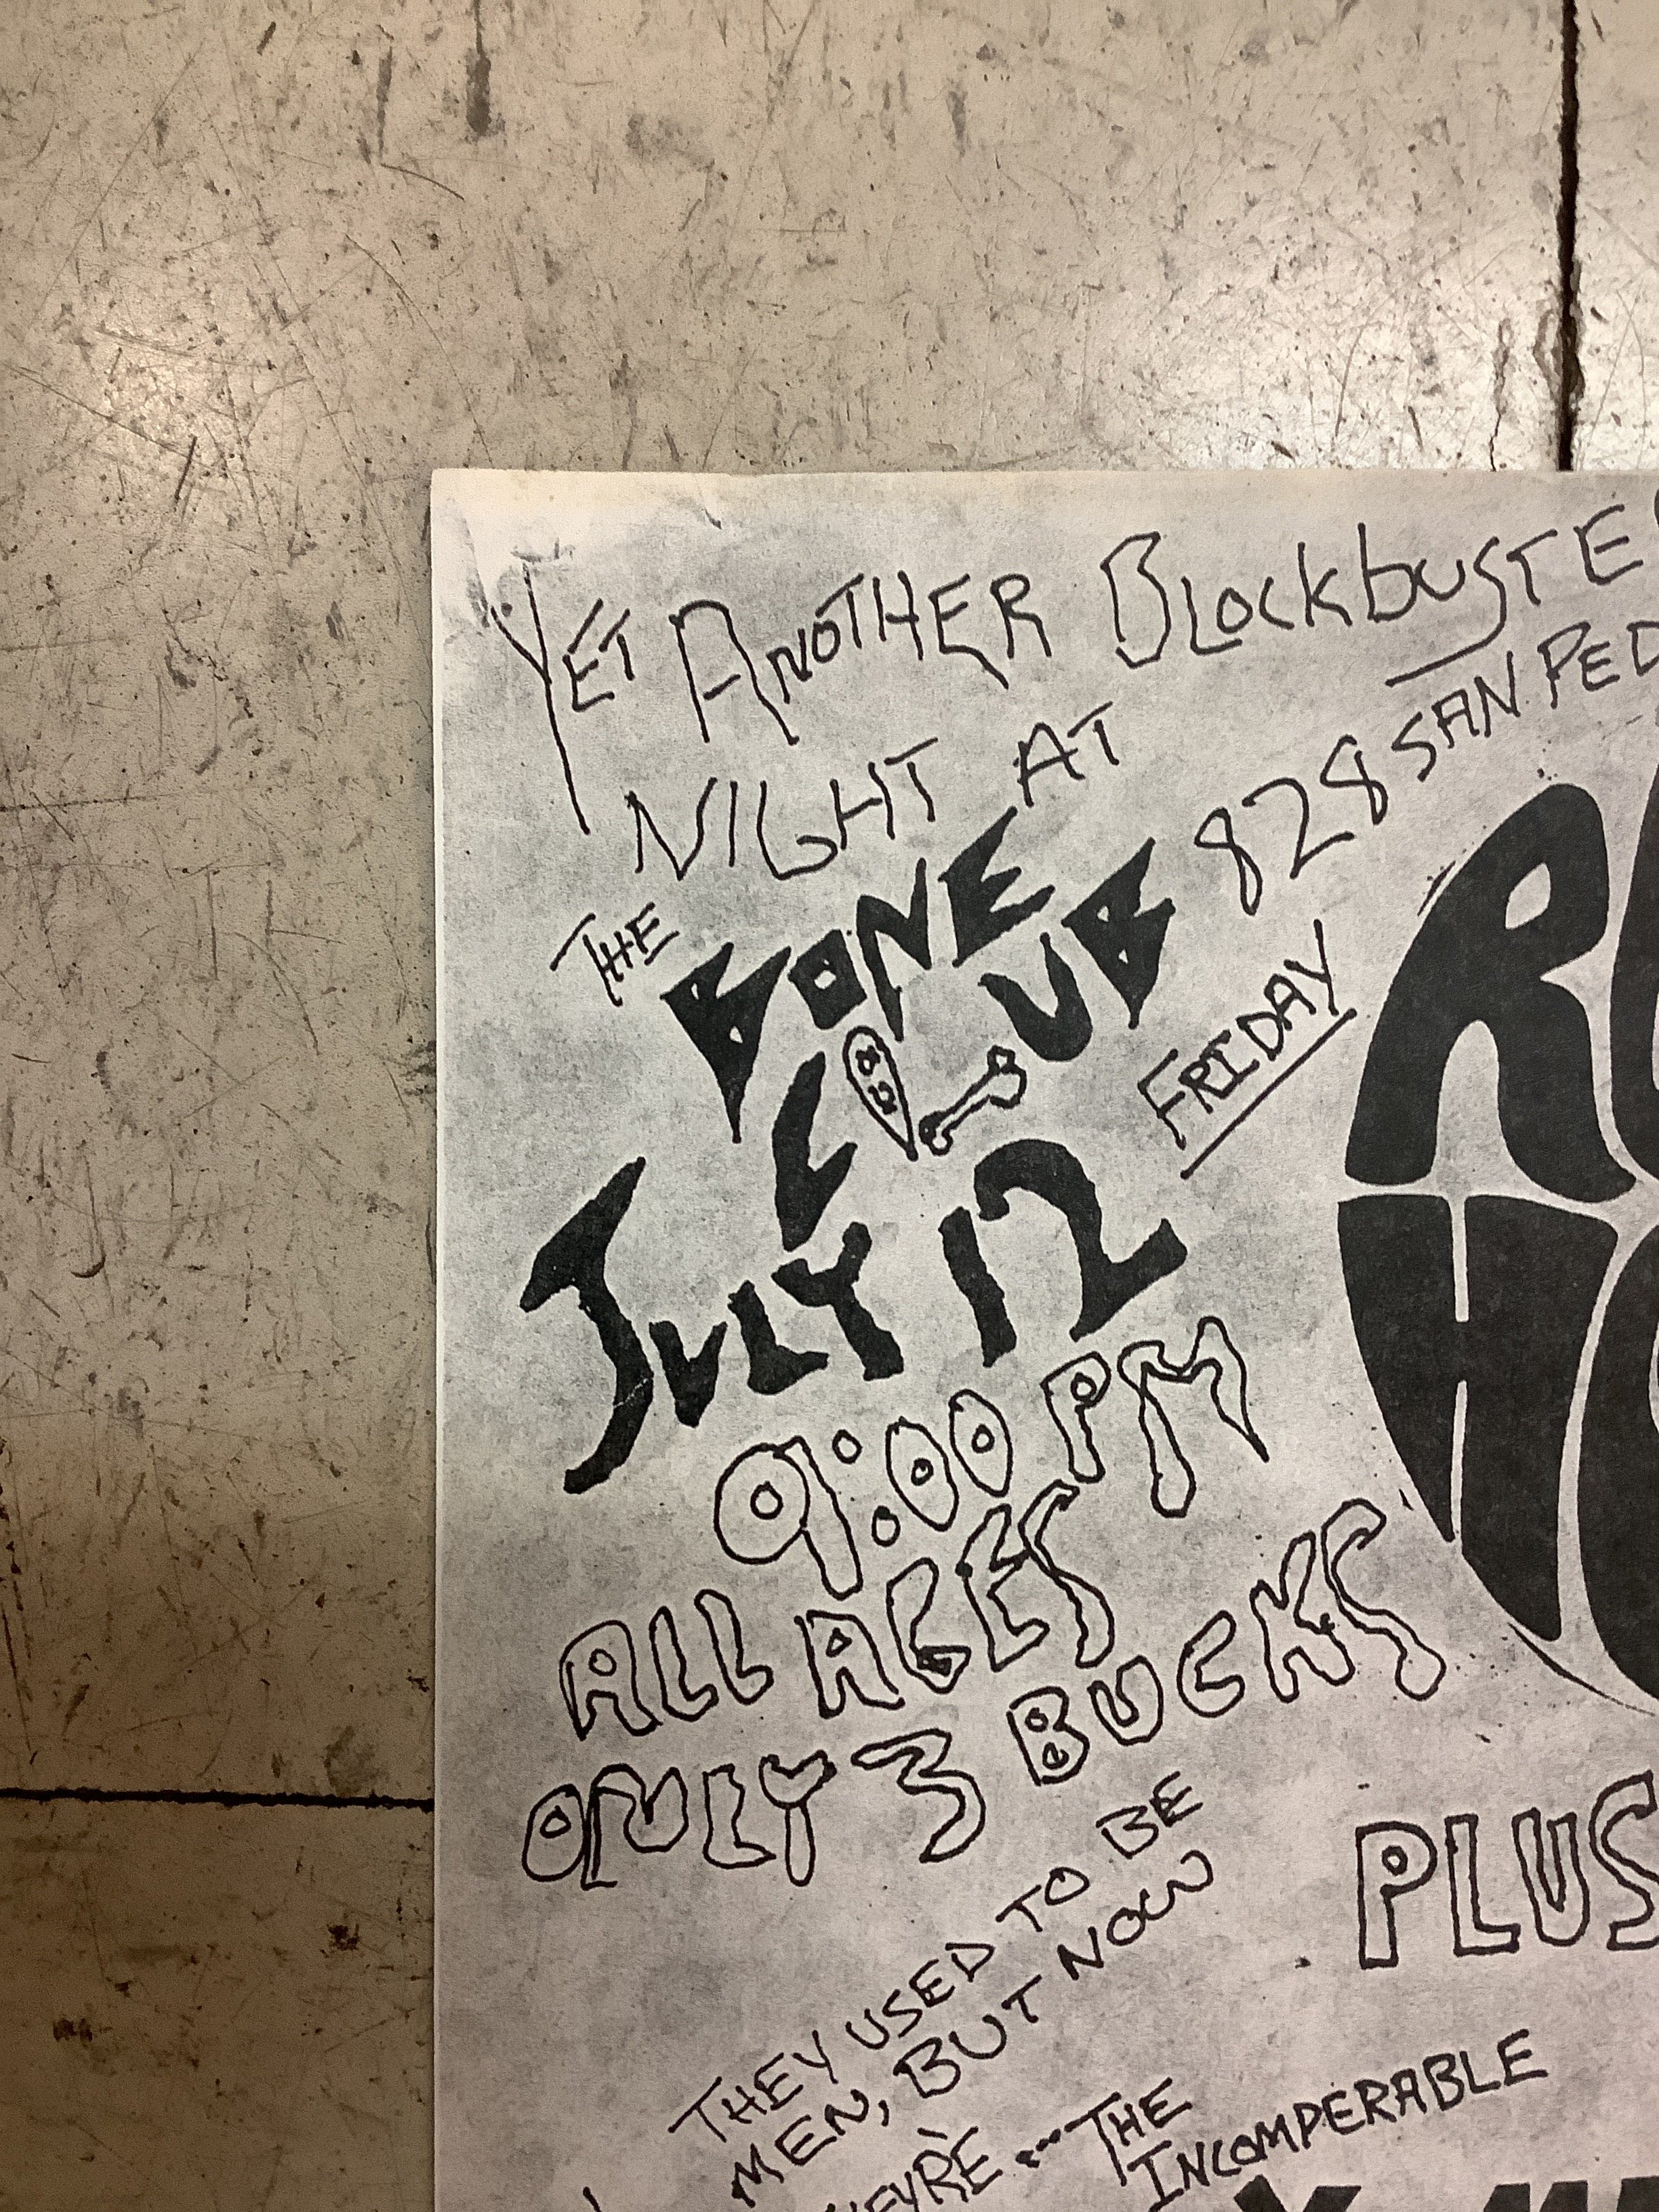 YET ANOTHER BLOCKBUSTE
NIGHT AT
THE BONE CLUB 828 SAN PED
JULY 12 FRIDAY
9:00 PM
ALL AGES
ONLY 3 BUCKS
PLUS
THEY USED TO BE
MEN, BUT NOW
EY'RE ... THE
INCOMPERABLE